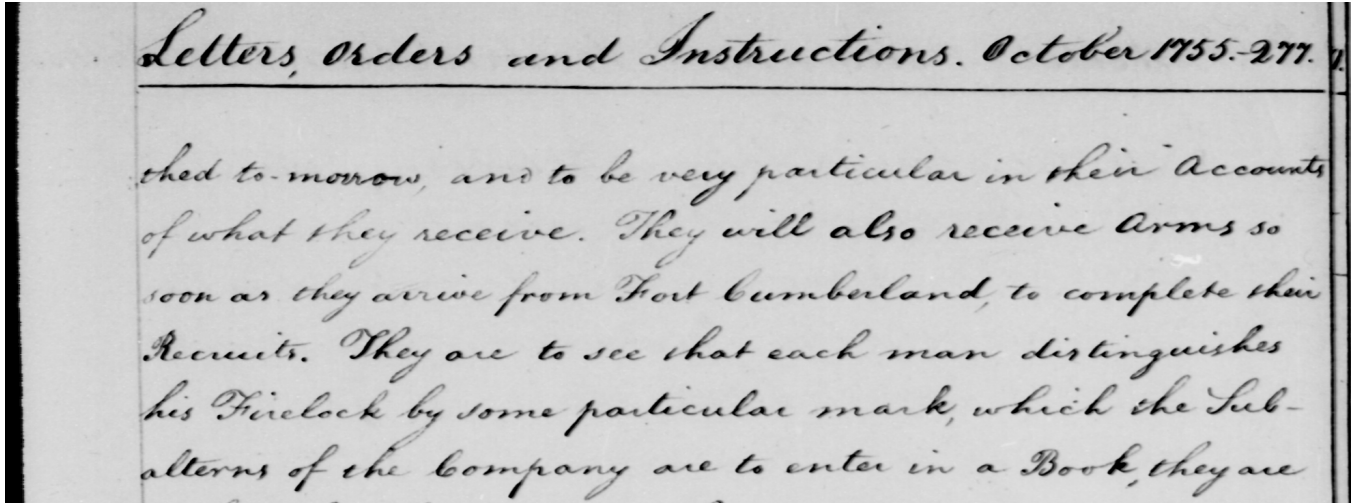 Letters, Orders and Instructions. October 1755.-277.
shed to-morrow, and to be very particular in their Accounts
of what they receive. They will also receive Arms so
soon as they arrive from Fort Cumberland, to complete their
Recruits. They are to see that each man distinguishes
his Firelock by some particular mark, which the Sub-
alterns of the Company are to enter in a Book, they are